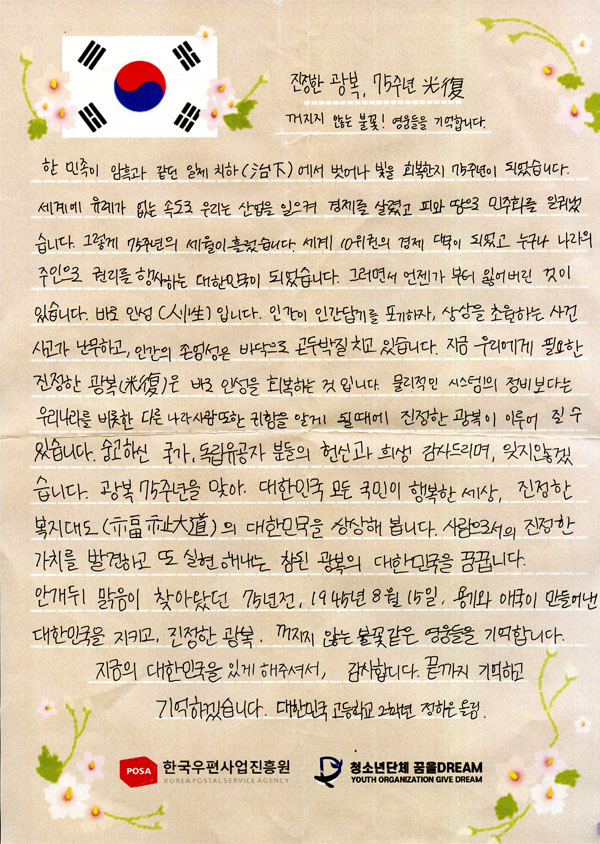 진정한 광복, 75주년 光復
꺼지지 않는 불꽃! 영웅들을 기억합니다.
한 민족이 암흑과 같던 일제 치하(治下)에서 벗어나 빛을 회복한지 75주년이 되었습니다.
세계에 유례가 없는 속도로 우리는 산업을 일으켜 경제를 살렸고 피와 땀으로 민주화를 일궈냈
습니다. 그렇게 75년의 세월이 흘렀습니다. 세계 10위권의 경제 대국이 되었고 누구나 나라의
주인으로 권리를 행사하는 대한민국이 되었습니다. 그러면서 언젠가 부터 잃어버린 것이
있습니다. 바로 인성(人性)입니다. 인간이 인간답기를 포기하자, 상상을 초월하는 사건
사고가 난무하고, 인간의 존엄성은 바닥으로 곤두박질 치고 있습니다. 지금 우리에게 필요한
진정한 광복(光復)은 바로 인성을 회복하는 것 입니다. 물리적인 시스템의 정비보다는
우리나라를 비롯한 다른 나라 사람 또한 귀함을 알게 될 때에 진정한 광복이 이루어 질 수
있습니다. 숭고하신 국가, 독립유공자 분들의 헌신과 희생 감사드리며, 잊지않겠
습니다. 광복 75주년을 맞아. 대한민국 모든 국민이 행복한 세상, 진정한
복지대도(福祉大道)의 대한민국을 상상해 봅니다. 사람으로서의 진정한
가치를 발견하고 또 실현 해내는 참된 광복의 대한민국을 꿈꿉니다.
안개뒤 맑음이 찾아왔던 75년전, 1945년 8월 15일. 용기와 애국이 만들어낸
대한민국을 지키고, 진정한 광복. 꺼지지 않는 불꽃같은 영웅들을 기억합니다.
지금의 대한민국을 있게 해주셔서, 감사합니다. 끝까지 기억하고
기억하겠습니다. 대한민국 고등학교 2학년 정하은 올림.
POSA 한국우편사업진흥원
KOREA POSTAL SERVICE AGENCY
청소년단체 꿈을DREAM
YOUTH ORGANIZATION GIVE DREAM